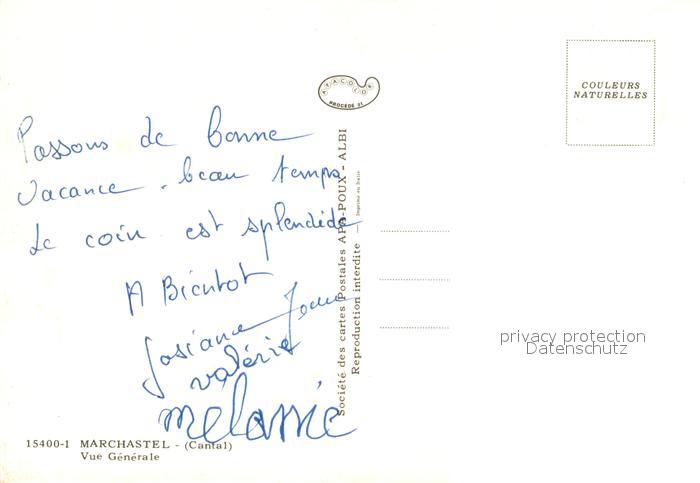 APACOLOR
PROCÉDÉ 21
COULEURS
NATURELLES
Passons de bonne
vacance. beau temps
Le coin est splendide
A Bientot
Josiane
valérie
melanie
Société des cartes Postales APA-POUX - ALBI
Reproduction interdite — Imprimé en Italie
privacy protection
Datenschutz
15400-1 MARCHASTEL - (Cantal)
Vue Générale